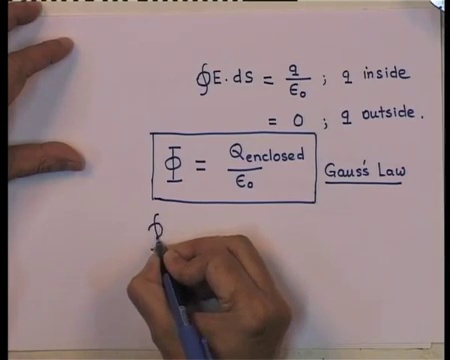 ∮E.ds = q/ε₀ ; q inside
= 0 ; q outside.
Φ = Qenclosed/ε₀ Gauss's Law
∮